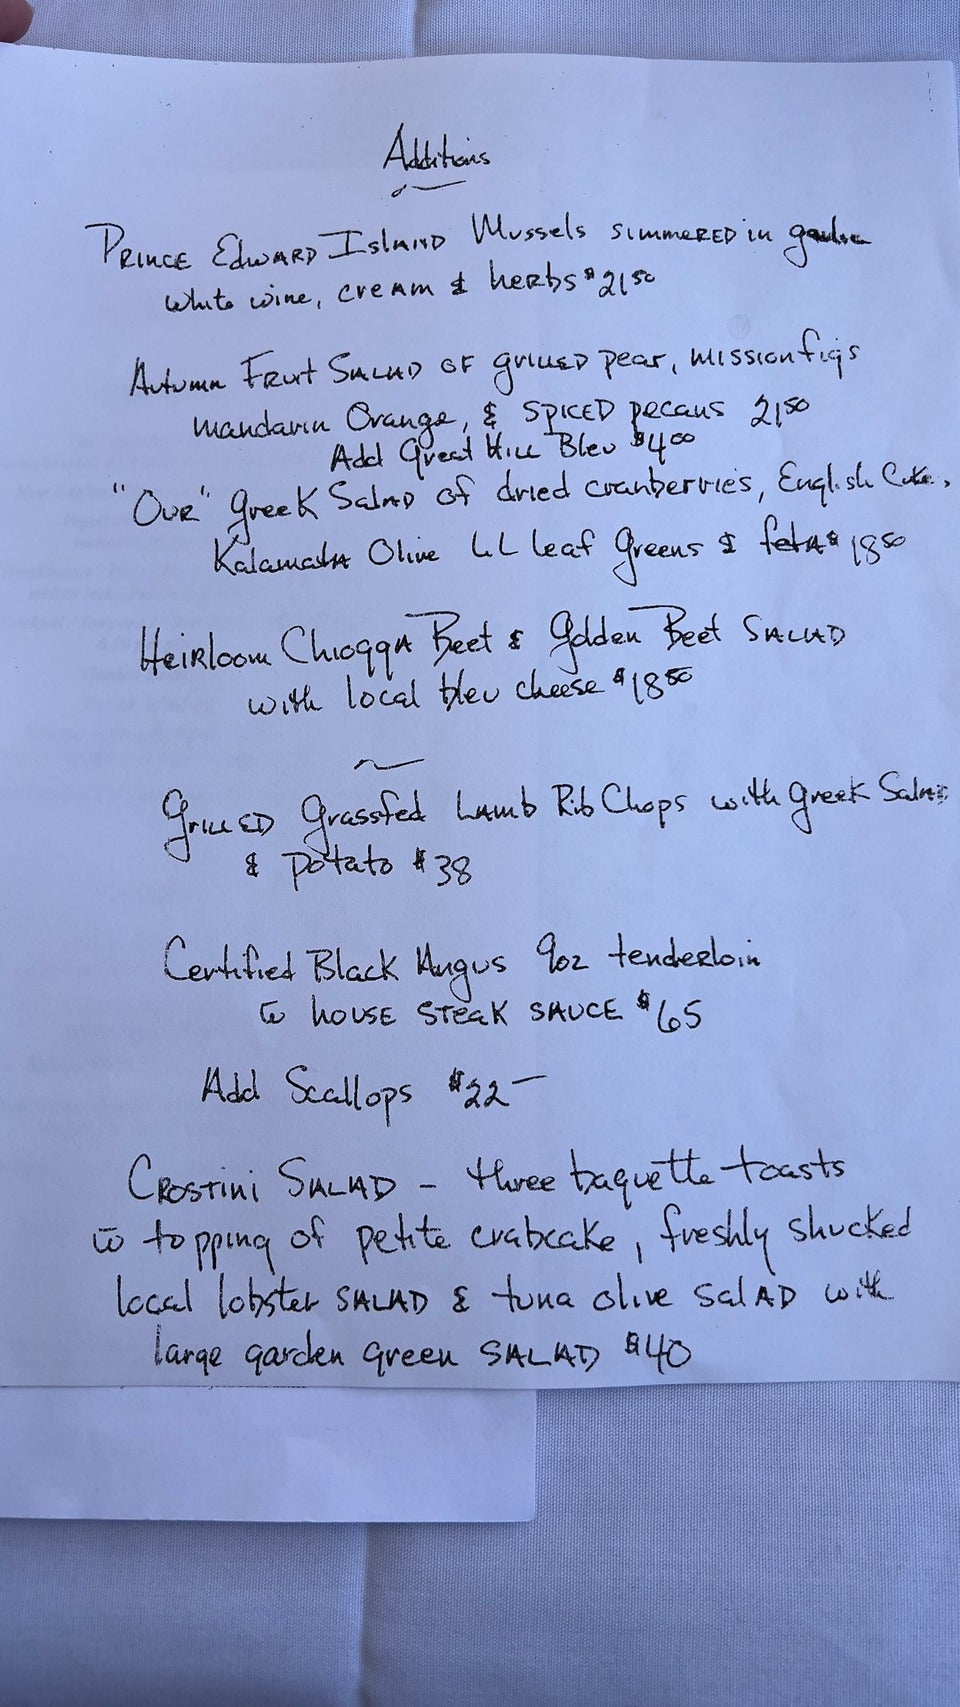 Additions
Prince Edward Island Mussels simmered in
white wine, cream & herbs $21.50
Autumn Fruit Salad of grilled pear, mission figs
mandarin Orange, & spiced pecans 21.50
Add Great Hill Bleu $4.00
"Our" Greek Salad of dried cranberries, English Cuke,
Kalamata Olive LL leaf Greens & feta $18.50
Heirloom Chiogga Beet & Golden Beet Salad
with local bleu cheese $18.50
Grilled Grassfed Lamb Rib Chops with Greek Salad
& potato $38
Certified Black Angus 9oz tenderloin
w house steak sauce $65
Add Scallops $22-
Crostini Salad - three baguette toasts
w topping of petite crabcake, freshly shucked
local lobster salad & tuna olive salad with
large garden green salad $40